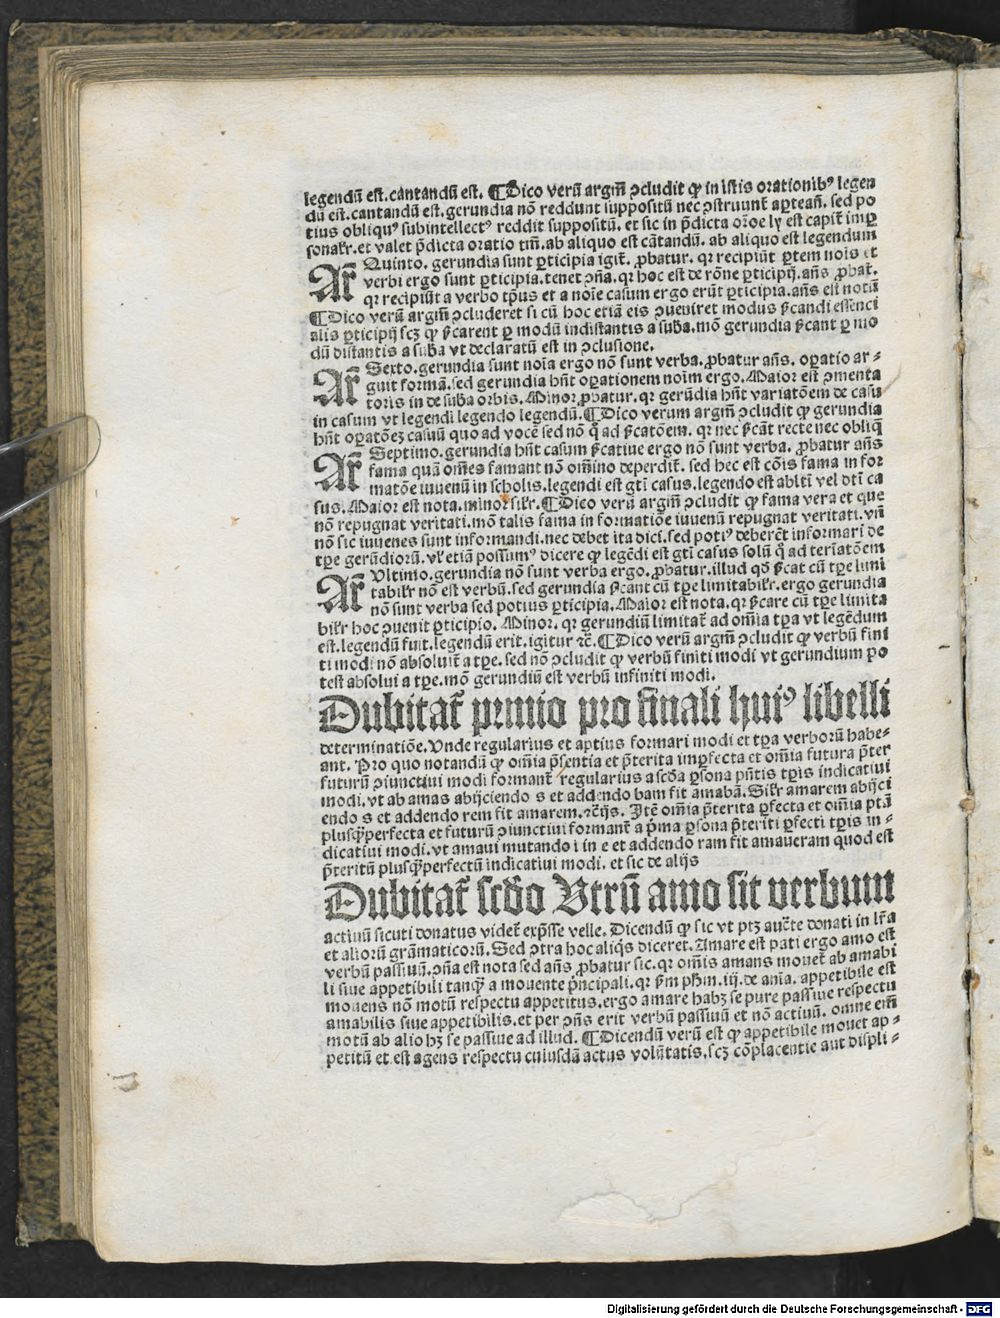 legendū est. cantandū est. ¶Dico verū argm̄ ꝯcludit ꝙ in istis orationibꝰ legen
dū est. cantandū est. gerundia nō reddunt suppositū nec ꝯstruunt̄ aꝑteañ. sed po
tius obliquꝰ subintellectꝰ reddit suppositū. et sic in p̄dicta orōe ly est capit̄ imꝑ
sonalr̄. et valet p̄dicta oratio tm̄. ab aliquo est cātandū. ab aliquo est legendum
Ar̄ Quinto. gerundia sunt ꝑticipia igit̄. ꝓbatur. qr recipiūt ꝑtem nois et
verbi ergo sunt ꝑticipia. tenet ꝯña. qr hoc est de rōne ꝑticipij. añs ꝓbat̄.
qr recipiūt a verbo tp̄us et a noīe casum ergo erūt ꝑticipia. añs est notū
¶Dico verū argm̄ ꝯcluderet si cū hoc etiā eis ꝯueniret modus ſcandi essenci
alis ꝑticipij scꝫ ꝙ ſcarent ꝑ modū indistantis a suba. mō gerundia ſcant ꝑ mo
dū distantis a suba vt declaratū est in ꝯclusione.
Ar̄ Sexto. gerundia sunt noīa ergo nō sunt verba. ꝓbatur añs. oꝑatio ar⸗
guit formā. sed gerundia hn̄t oꝑationem noīm ergo. Maior est ꝯmenta
toris in de suba orbis. Minor ꝓbatur. qr gerūdia hn̄t variatōem de casu
in casum vt legendi legendo legendū. ¶Dico verum argm̄ ꝯcludit ꝙ gerundia
hn̄t oꝑatōeꝫ casuū quo ad vocē sed nō q̊ ad ſcatōem. qr nec ſcāt recte nec obliq̄
Ar̄ Septimo. gerundia hn̄t casum ſcatiue ergo nō sunt verba. ꝓbatur añs
fama quā om̄es famant nō om̄ino deperdit̄. sed hec est cōis fama in for
matōe iuuenū in scholis. legendi est gt̄i casus. legendo est ablt̄i vel dt̄i ca
sus. Maior est nota. minor sılr̄. ¶Dico verū argm̄ ꝯcludit ꝙ fama vera et que
nō repugnat veritati. mō talis fama in formatiōe iuuenū repugnat veritati. vn̄
nō sic iuuenes sunt informandi. nec debet ita dici. sed potiꝰ deberēt informari de
tp̄e gerūdiorū. vl' etiā possumꝰ dicere ꝙ legēdi est gt̄i casus solū q̊ ad teriatōem
Ar̄ Vltimo. gerundia nō sunt verba ergo. ꝓbatur. illud qd̄ ſcat cū tp̄e limi
tabilr̄ nō est verbū. sed gerundia ſcant cū tp̄e limitabilr̄. ergo gerundia
nō sunt verba sed potius ꝑticipia. Maior est nota. qr ſcare cū tp̄e limita
bilr̄ hoc ꝯuenit ꝑticipio. Minor. qr gerundiū limitat̄ ad om̄ia tp̄a vt legēdum
est. legendū fuit. legendū erit. igitur ꝛc̄. ¶Dico verū argm̄ ꝯcludit ꝙ verbū fini
ti modi nō absoluit̄ a tp̄e. sed nō ꝯcludit ꝙ verbū finiti modi vt gerundium po
test absolui a tp̄e. mō gerundiū est verbū infiniti modi.
Dubitat̄ primo pro finali huiꝰ libelli
determinatiōe. Vnde regularius et aptius formari modi et tp̄a verborū habe⸗
ant. Pro quo notandū ꝙ om̄ia p̄sentia et p̄terita imꝑfecta et om̄ia futura p̄ter
futurū ꝯiunctiui modi formant̄ regularius a scd̄a ꝑsona pn̄tis tꝑis indicatiui
modi. vt ab amas abijciendo s et addendo bam fit amabā. Silr̄ amarem abijci
endo s et addendo rem fit amarem. ꝛc̄ijs. Itē om̄ia p̄terita ꝑfecta et om̄ia pt̄a
plusqꝫꝑfecta et futurū ꝯiunctiui formant̄ a p̄ma ꝑsona p̄teriti ꝑfecti tꝑis in⸗
dicatiui modi. vt amaui mutando i in e et addendo ram fit amaueram quod est
p̄teritū plusqꝫꝑfectum indicatiui modi. et sic de alijs
Dubitat̄ scd̄o Vtrū amo sit verbum
actiuū sicuti donatus videt̄ exp̄sse velle. Dicendū ꝙ sic vt ptꝫ auct̄e donati in lr̄a
et aliorū grāmaticorū. Sed ꝯtra hoc aliqs diceret. Amare est pati ergo amo est
verbū passiuū. ꝯña est nota sed añs ꝓbatur sic. qr om̄is amans mouet̄ ab amabi
li siue appetibili tanqꝫ a mouente p̄ncipali. qr ſm ph̄m. iij. de aīa. appetibile est
mouens nō motū respectu appetitus. ergo amare habꝫ se pure passiue respectu
amabilis siue appetibilis. et per ꝯn̄s erit verbū passiuū et nō actiuū. omne em̄
motū ab alio hꝫ se passiue ad illud. ¶Dicendū verū est ꝙ appetibile mouet ap⸗
petitū et est agens respectu cuiusdā actus volūtatis. scꝫ cōplacentie aut displi⸗
Digitalisierung gefördert durch die Deutsche Forschungsgemeinschaft - DFG